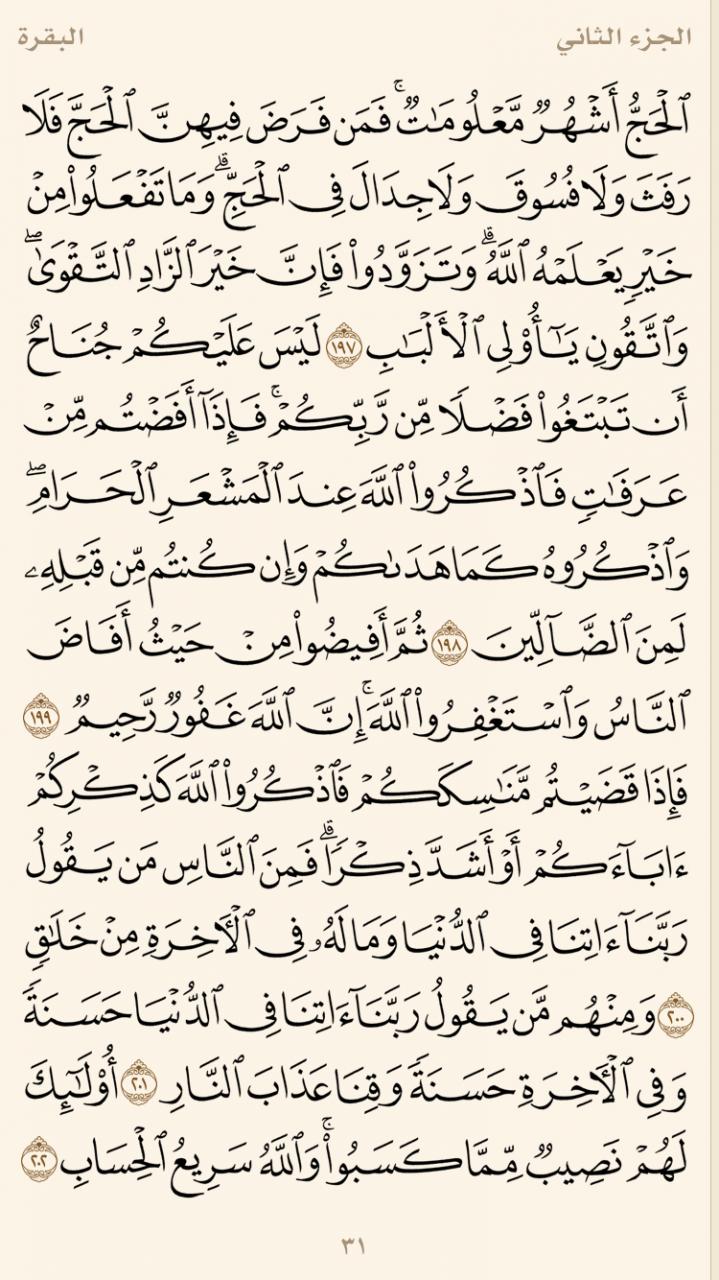 الجزء الثاني
البقرة
ٱلۡحَجُّ أَشۡهُرٞ مَّعۡلُومَٰتٞۚ فَمَن فَرَضَ فِيهِنَّ ٱلۡحَجَّ فَلَا
رَفَثَ وَلَا فُسُوقَ وَلَا جِدَالَ فِي ٱلۡحَجِّۗ وَمَا تَفۡعَلُواْ مِنۡ
خَيۡرٖ يَعۡلَمۡهُ ٱللَّهُۗ وَتَزَوَّدُواْ فَإِنَّ خَيۡرَ ٱلزَّادِ ٱلتَّقۡوَىٰۖ
وَٱتَّقُونِ يَٰٓأُوْلِي ٱلۡأَلۡبَٰبِ ١٩٧ لَيۡسَ عَلَيۡكُمۡ جُنَاحٌ
أَن تَبۡتَغُواْ فَضۡلٗا مِّن رَّبِّكُمۡۚ فَإِذَآ أَفَضۡتُم مِّنۡ
عَرَفَٰتٖ فَٱذۡكُرُواْ ٱللَّهَ عِندَ ٱلۡمَشۡعَرِ ٱلۡحَرَامِۖ
وَٱذۡكُرُوهُ كَمَا هَدَىٰكُمۡ وَإِن كُنتُم مِّن قَبۡلِهِۦ
لَمِنَ ٱلضَّآلِّينَ ١٩٨ ثُمَّ أَفِيضُواْ مِنۡ حَيۡثُ أَفَاضَ
ٱلنَّاسُ وَٱسۡتَغۡفِرُواْ ٱللَّهَۚ إِنَّ ٱللَّهَ غَفُورٞ رَّحِيمٞ ١٩٩
فَإِذَا قَضَيۡتُم مَّنَٰسِكَكُمۡ فَٱذۡكُرُواْ ٱللَّهَ كَذِكۡرِكُمۡ
ءَابَآءَكُمۡ أَوۡ أَشَدَّ ذِكۡرٗاۗ فَمِنَ ٱلنَّاسِ مَن يَقُولُ
رَبَّنَآ ءَاتِنَا فِي ٱلدُّنۡيَا وَمَا لَهُۥ فِي ٱلۡأٓخِرَةِ مِنۡ خَلَٰقٖ
٢٠٠ وَمِنۡهُم مَّن يَقُولُ رَبَّنَآ ءَاتِنَا فِي ٱلدُّنۡيَا حَسَنَةٗ
وَفِي ٱلۡأٓخِرَةِ حَسَنَةٗ وَقِنَا عَذَابَ ٱلنَّارِ ٢٠١ أُوْلَٰٓئِكَ
لَهُمۡ نَصِيبٞ مِّمَّا كَسَبُواْۚ وَٱللَّهُ سَرِيعُ ٱلۡحِسَابِ ٢٠٢
٣١